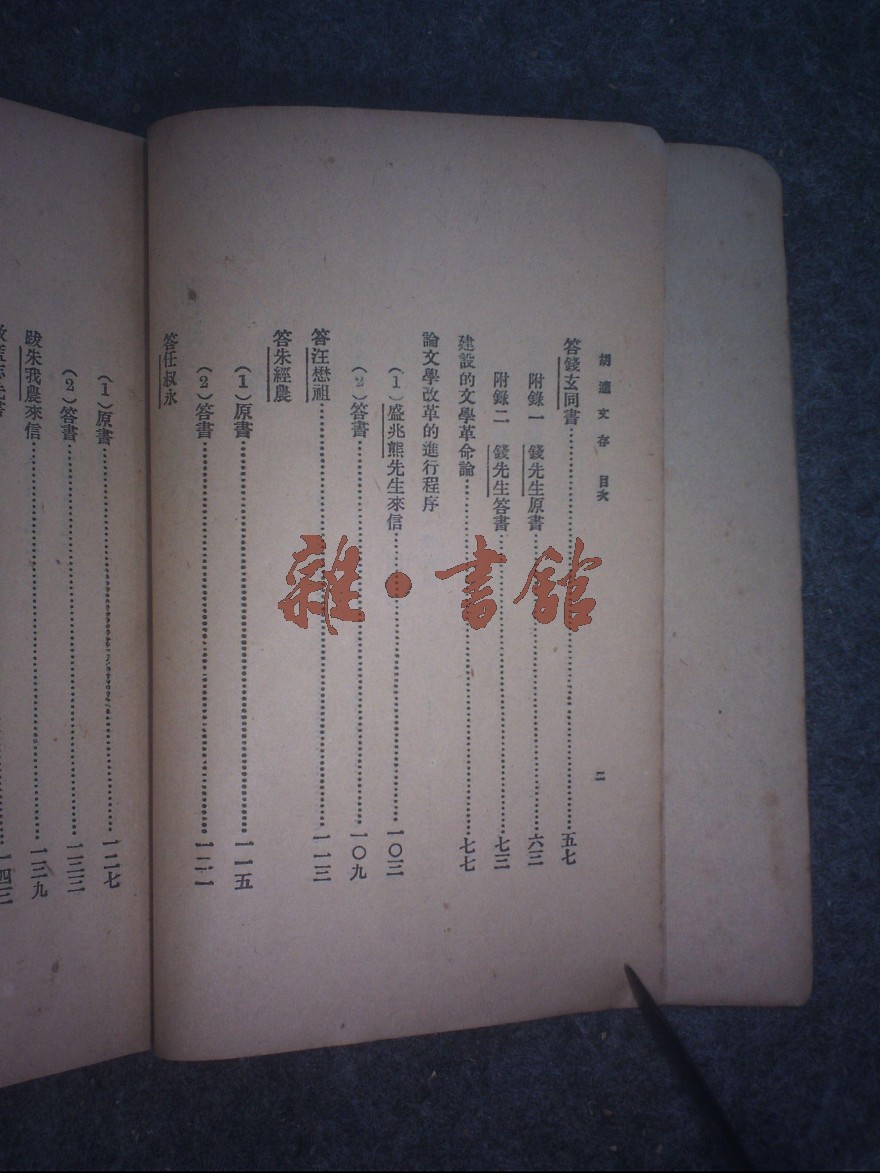 胡適文存 目次
二
答錢玄同書……五七
附錄一 錢先生原書……六三
附錄二 錢先生答書……七三
建設的文學革命論……七七
論文學改革的進行程序
(1)盛兆熊先生來信……一〇三
(2)答書……一〇九
答汪懋祖……一一三
答朱經農
(1)原書……一一五
(2)答書……一二一
答任叔永
(1)原書……一二七
(2)答書……一三三
跋朱我農來信……一三九
一四三
雜·書館